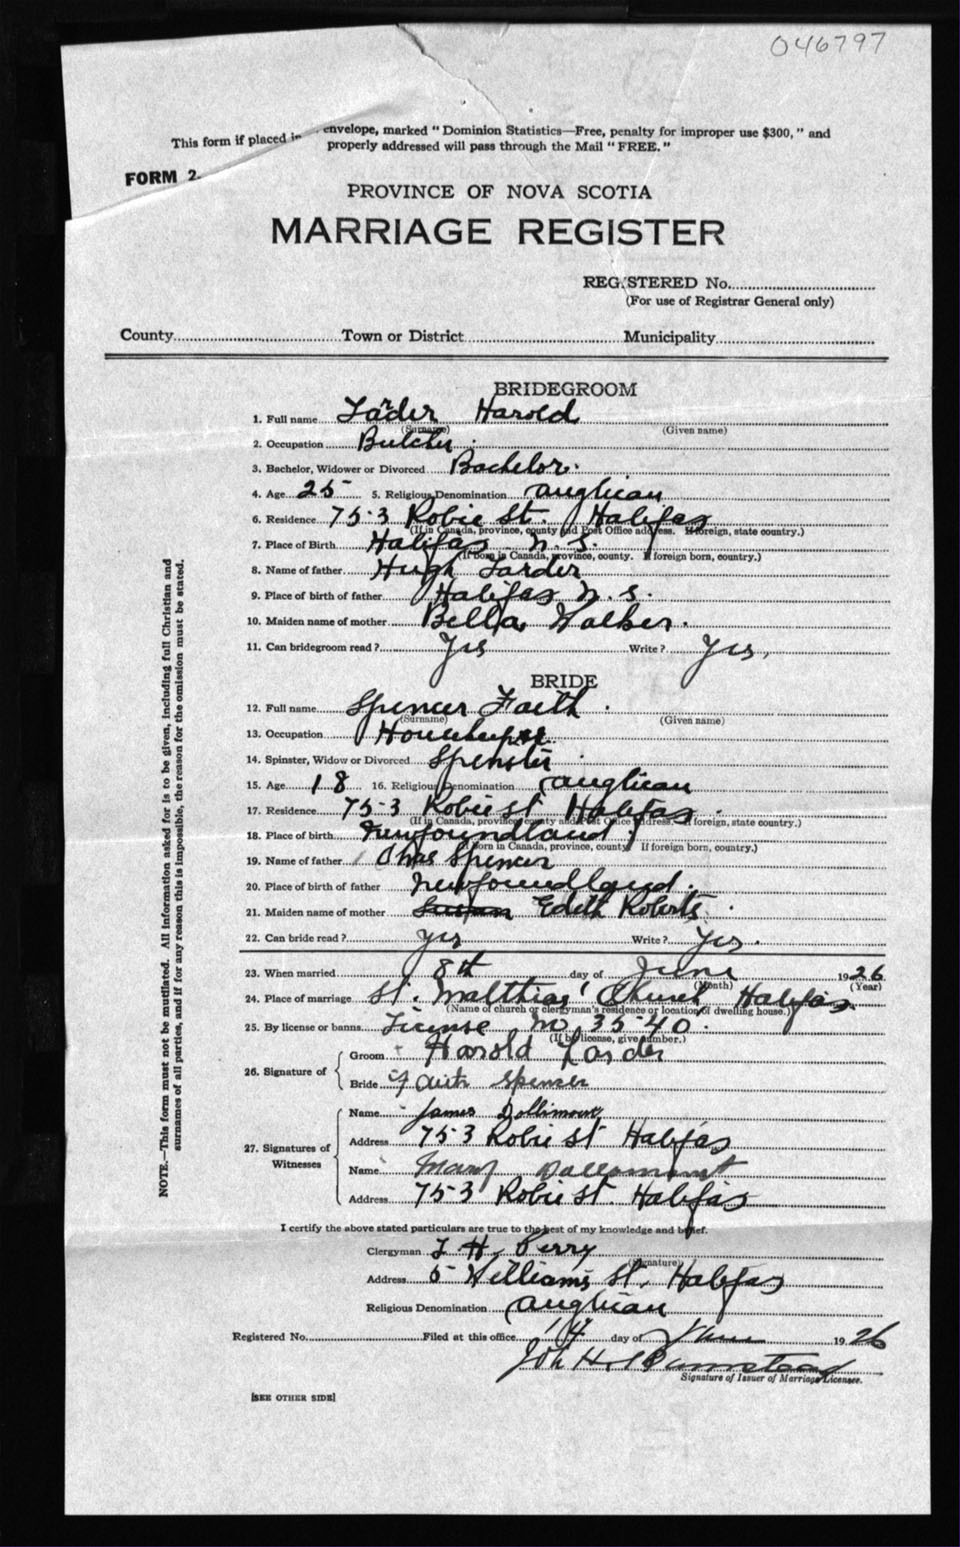 046797
This form if placed in envelope, marked "Dominion Statistics—Free, penalty for improper use $300," and
properly addressed will pass through the Mail "FREE."
FORM 2.
PROVINCE OF NOVA SCOTIA
MARRIAGE REGISTER
REGISTERED No.
(For use of Registrar General only)
County Town or District Municipality
BRIDEGROOM
1. Full name Larder Harold
(Surname) (Given name)
2. Occupation Butcher
3. Bachelor, Widower or Divorced Bachelor.
4. Age 25 5. Religious Denomination Anglican
6. Residence 753 Robie St. Halifax
(If in Canada, province, county and Post Office address. If foreign, state country.)
7. Place of Birth Halifax N. S.
(If born in Canada, province, county. If foreign born, country.)
8. Name of father Hugh Larder
9. Place of birth of father Halifax N. S.
10. Maiden name of mother Bella Walker.
11. Can bridegroom read? Yes Write? Yes,
BRIDE
12. Full name Spencer Faith.
(Surname) (Given name)
13. Occupation Housekeeper
14. Spinster, Widow or Divorced Spinster
15. Age 18 16. Religious Denomination Anglican
17. Residence 753 Robie St Halifax.
(If in Canada, province, county and Post Office address. If foreign, state country.)
18. Place of birth Newfoundland
(If born in Canada, province, county. If foreign born, country.)
19. Name of father Chas Spencer
20. Place of birth of father Newfoundland.
21. Maiden name of mother Susan Edith Roberts.
22. Can bride read? Yes Write? Yes.
23. When married 8th day of June 1926
(Month) (Year)
24. Place of marriage St. Matthias' Church Halifax.
(Name of church or clergyman's residence or location of dwelling house.)
25. By license or banns License No 3540.
(If by license, give number.)
26. Signature of
Groom Harold Larder
Bride Faith Spencer
27. Signatures of Witnesses
Name James Dollimount
Address 753 Robie St Halifax
Name Mary Dollimount
Address 753 Robie St. Halifax
I certify the above stated particulars are true to the best of my knowledge and belief.
Clergyman T. H. Perry
(Signature)
Address 5 Williams St. Halifax
Religious Denomination Anglican
Registered No. Filed at this office 14 day of June 1926
Signature of Issuer of Marriage Licenses.
[SEE OTHER SIDE]
NOTE.—This form must not be mutilated. All information asked for is to be given, including full Christian and
surnames of all parties, and if for any reason this is impossible, the reason for the omission must be stated.